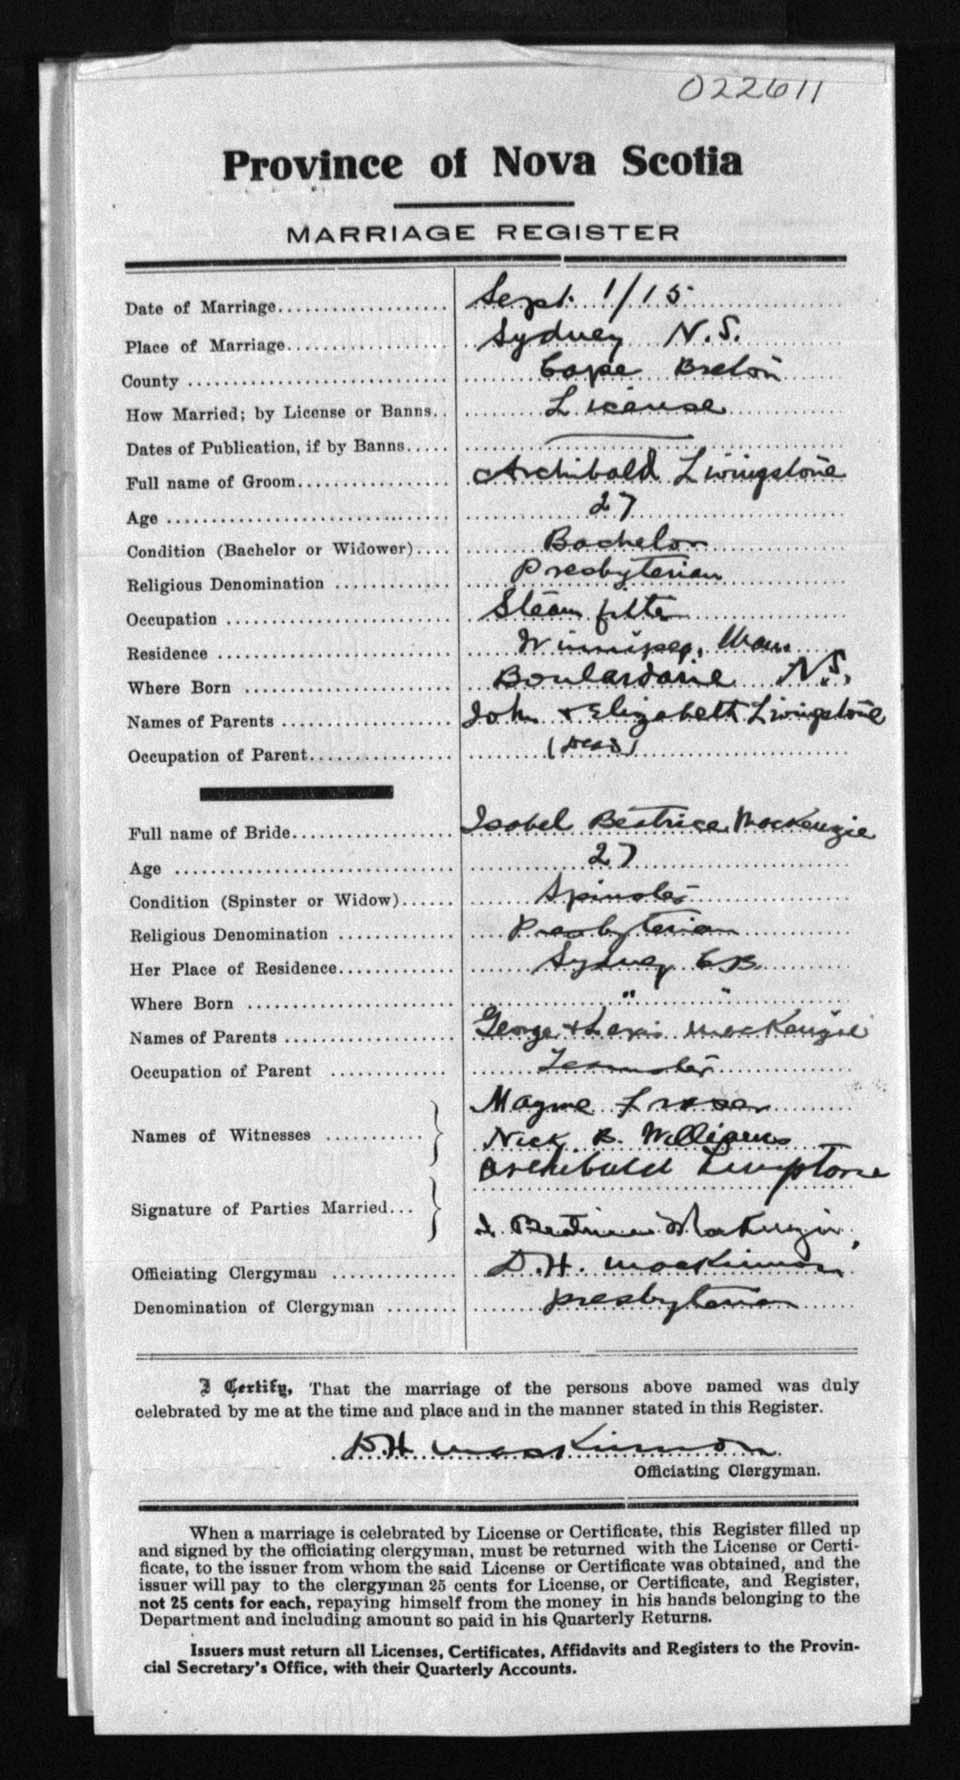 022611
Province of Nova Scotia
MARRIAGE REGISTER
Date of Marriage Sept. 1/15
Place of Marriage Sydney N.S.
County Cape Breton
How Married; by License or Banns License
Dates of Publication, if by Banns
Full name of Groom Archibald Livingstone
Age 27
Condition (Bachelor or Widower) Bachelor
Religious Denomination Presbyterian
Occupation Steam fitter
Residence Winnipeg, Man.
Where Born Boulardarie N.S.
Names of Parents John + Elizabeth Livingstone
Occupation of Parent (Dead)
Full name of Bride Isabel Beatrice MacKenzie
Age 27
Condition (Spinster or Widow) Spinster
Religious Denomination Presbyterian
Her Place of Residence Sydney C.B.
Where Born " "
Names of Parents George + MacKenzie
Occupation of Parent Teamster
Names of Witnesses Mayme Fraser
Nick B. Williams
Signature of Parties Married Archibald Livingstone
I. Beatrice MacKenzie
Officiating Clergyman D. H. MacKinnon
Denomination of Clergyman Presbyterian
I Certify, That the marriage of the persons above named was duly
celebrated by me at the time and place and in the manner stated in this Register.
D. H. MacKinnon
Officiating Clergyman.
When a marriage is celebrated by License or Certificate, this Register filled up
and signed by the officiating clergyman, must be returned with the License or Certi-
ficate, to the issuer from whom the said License or Certificate was obtained, and the
issuer will pay to the clergyman 25 cents for License, or Certificate, and Register,
not 25 cents for each, repaying himself from the money in his hands belonging to the
Department and including amount so paid in his Quarterly Returns.
Issuers must return all Licenses, Certificates, Affidavits and Registers to the Provin-
cial Secretary's Office, with their Quarterly Accounts.